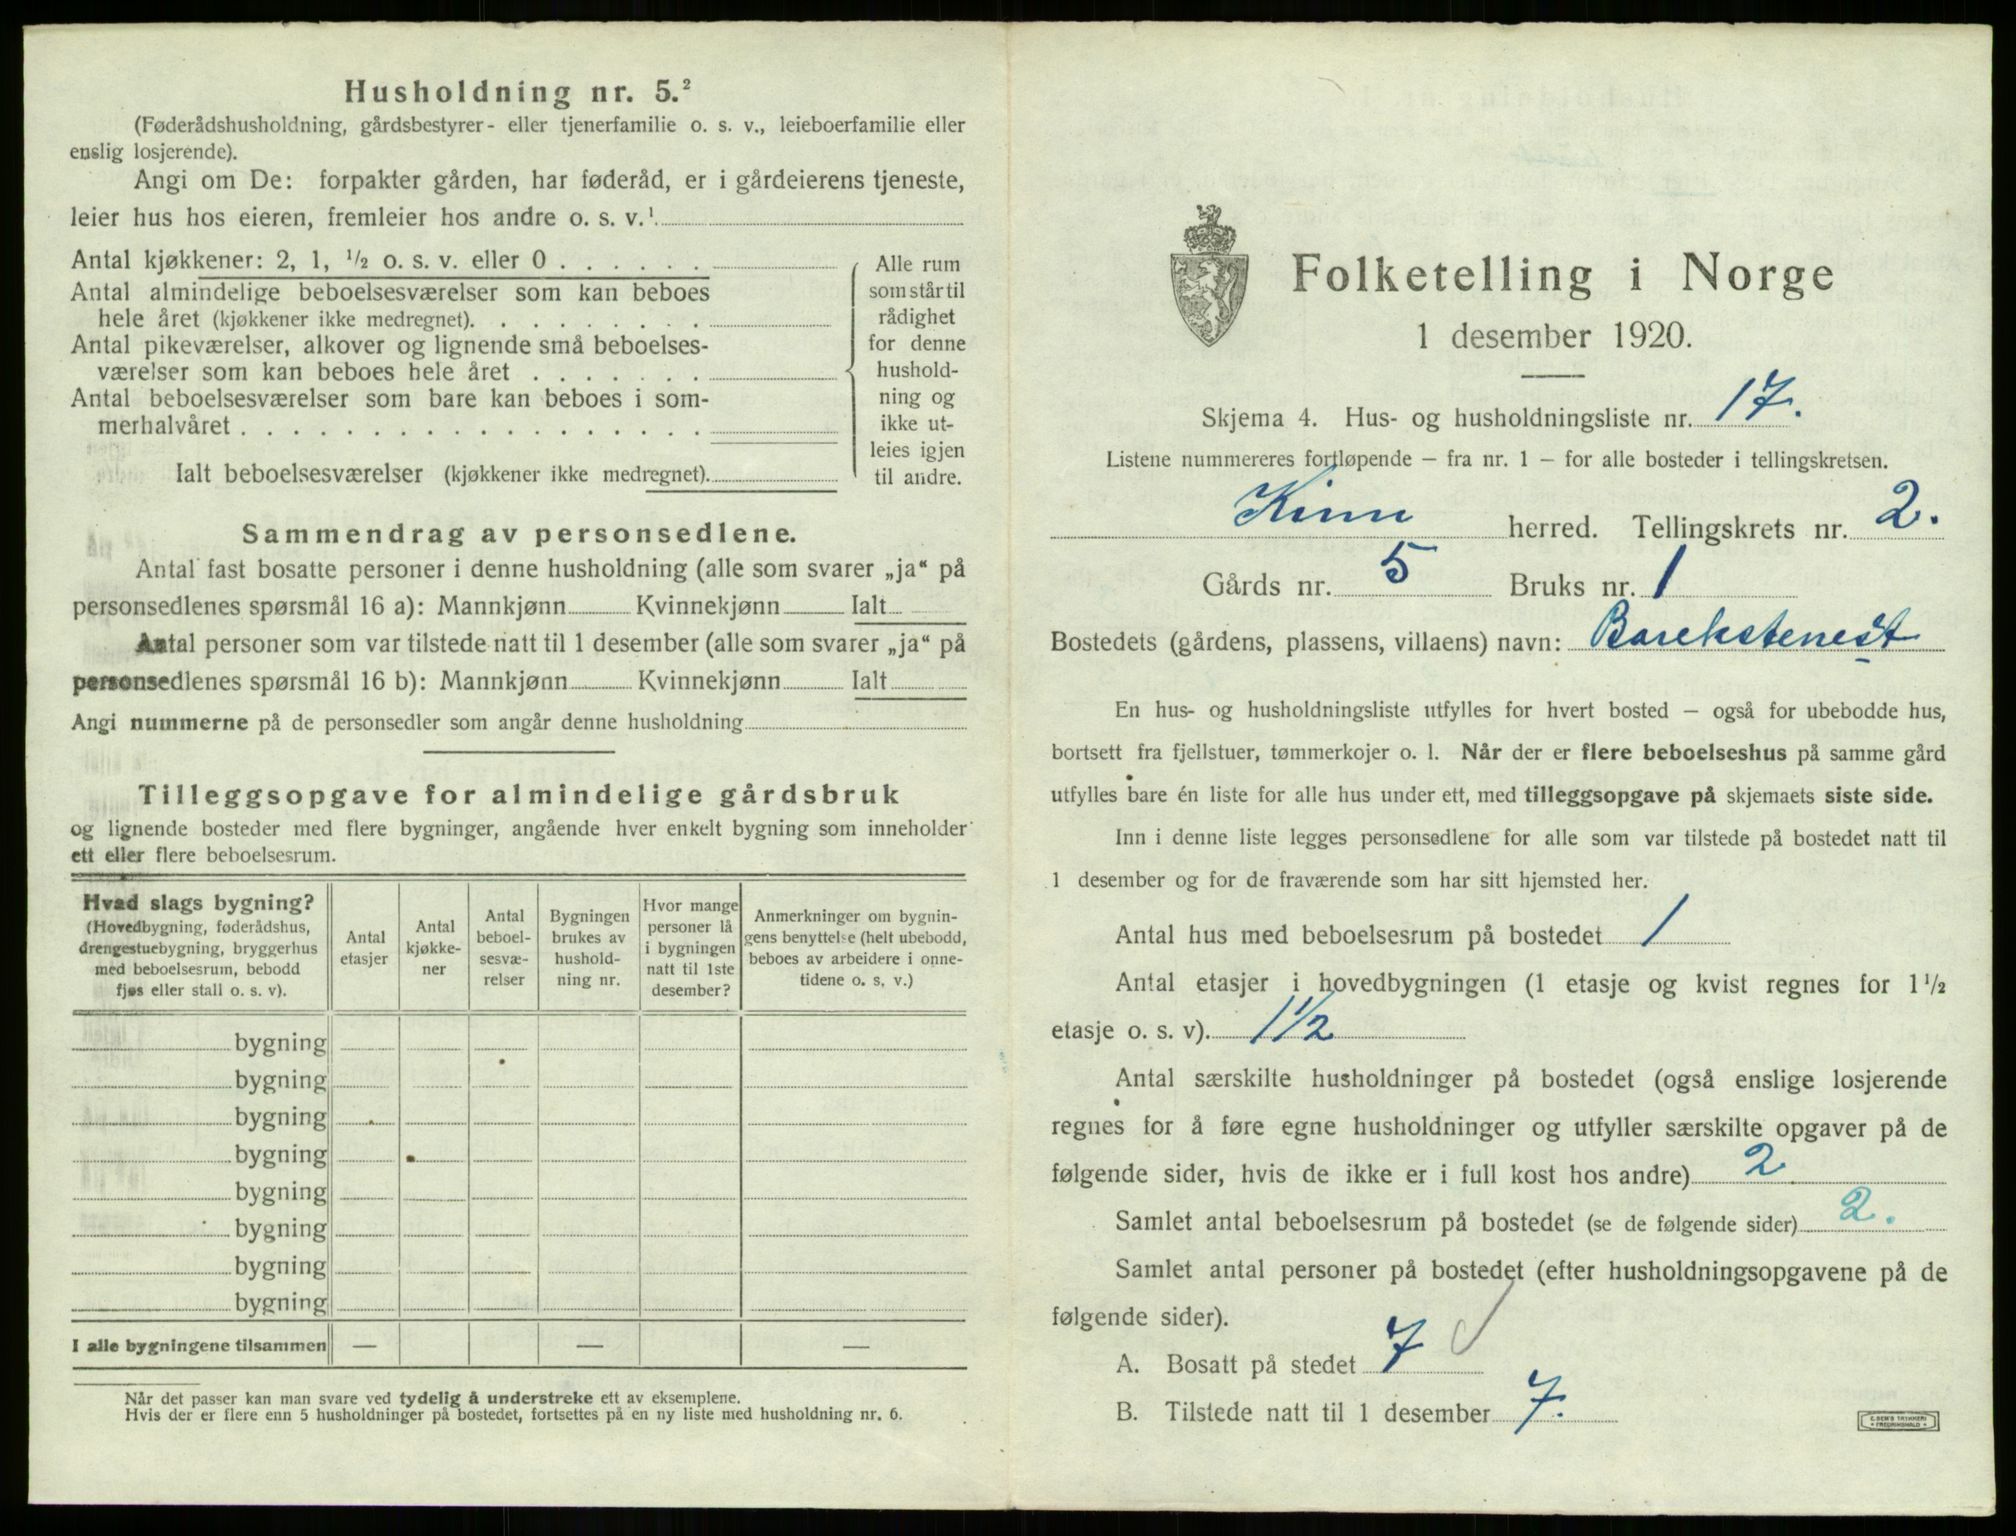 Husholdning nr. 5.²
(Føderådshusholdning, gårdsbestyrer- eller tjenerfamilie o. s. v., leieboerfamilie eller
enslig losjerende).
Angi om De: forpakter gården, har føderåd, er i gårdeierens tjeneste,
leier hus hos eieren, fremleier hos andre o. s. v.¹
Antal kjøkkener: 2, 1, ½ o. s. v. eller 0 . . . . . .
Antal almindelige beboelsesværelser som kan beboes
hele året (kjøkkener ikke medregnet). . . . . . . . .
Antal pikeværelser, alkover og lignende små beboelses-
værelser som kan beboes hele året . . . . . . .
Antal beboelsesværelser som bare kan beboes i som-
merhalvåret . . . . . . . . . . . . . . . . . .
Ialt beboelsesværelser (kjøkkener ikke medregnet).
Alle rum
som står til
rådighet
for denne
hushold-
ning og
ikke ut-
leies igjen
til andre.
Sammendrag av personsedlene.
Antal fast bosatte personer i denne husholdning (alle som svarer „ja“ på
personsedlenes spørsmål 16 a): Mannkjønn Kvinnekjønn Ialt
Antal personer som var tilstede natt til 1 desember (alle som svarer „ja“ på
personsedlenes spørsmål 16 b): Mannkjønn Kvinnekjønn Ialt
Angi nummerne på de personsedler som angår denne husholdning
Tilleggsopgave for almindelige gårdsbruk
og lignende bosteder med flere bygninger, angående hver enkelt bygning som inneholder
ett eller flere beboelsesrum.
Hvad slags bygning?
(Hovedbygning, føderådshus,
drengestuebygning, bryggerhus
med beboelsesrum, bebodd
fjøs eller stall o. s. v).
Antal
etasjer
Antal
kjøkke-
ner
Antal
beboel-
sesvæ-
relser
Bygningen
brukes av
hushold-
ning nr.
Hvor mange
personer lå
i bygningen
natt til 1ste
desember?
Anmerkninger om bygnin-
gens benyttelse (helt ubebodd,
beboes av arbeidere i onne-
tidene o. s. v.)
bygning
bygning
bygning
bygning
bygning
bygning
bygning
bygning
I alle bygningene tilsammen — — —
Når det passer kan man svare ved tydelig å understreke ett av eksemplene.
Hvis der er flere enn 5 husholdninger på bostedet, fortsettes på en ny liste med husholdning nr. 6.
Folketelling i Norge
1 desember 1920.
Skjema 4. Hus- og husholdningsliste nr. 17.
Listene nummereres fortløpende – fra nr. 1 – for alle bosteder i tellingskretsen.
Kinn herred. Tellingskrets nr. 2.
Gårds nr. 5 Bruks nr. 1
Bostedets (gårdens, plassens, villaens) navn: Barekstenest
En hus- og husholdningsliste utfylles for hvert bosted – også for ubebodde hus,
bortsett fra fjellstuer, tømmerkojer o. l. Når der er flere beboelseshus på samme gård
utfylles bare én liste for alle hus under ett, med tilleggsopgave på skjemaets siste side.
Inn i denne liste legges personsedlene for alle som var tilstede på bostedet natt til
1 desember og for de fraværende som har sitt hjemsted her.
Antal hus med beboelsesrum på bostedet 1
Antal etasjer i hovedbygningen (1 etasje og kvist regnes for 1½
etasje o. s. v). 1½
Antal særskilte husholdninger på bostedet (også enslige losjerende
regnes for å føre egne husholdninger og utfyller særskilte opgaver på de
følgende sider, hvis de ikke er i full kost hos andre) 2
Samlet antal beboelsesrum på bostedet (se de følgende sider) 2.
Samlet antal personer på bostedet (efter husholdningsopgavene på de
følgende sider).
A. Bosatt på stedet 7
B. Tilstede natt til 1 desember 7.